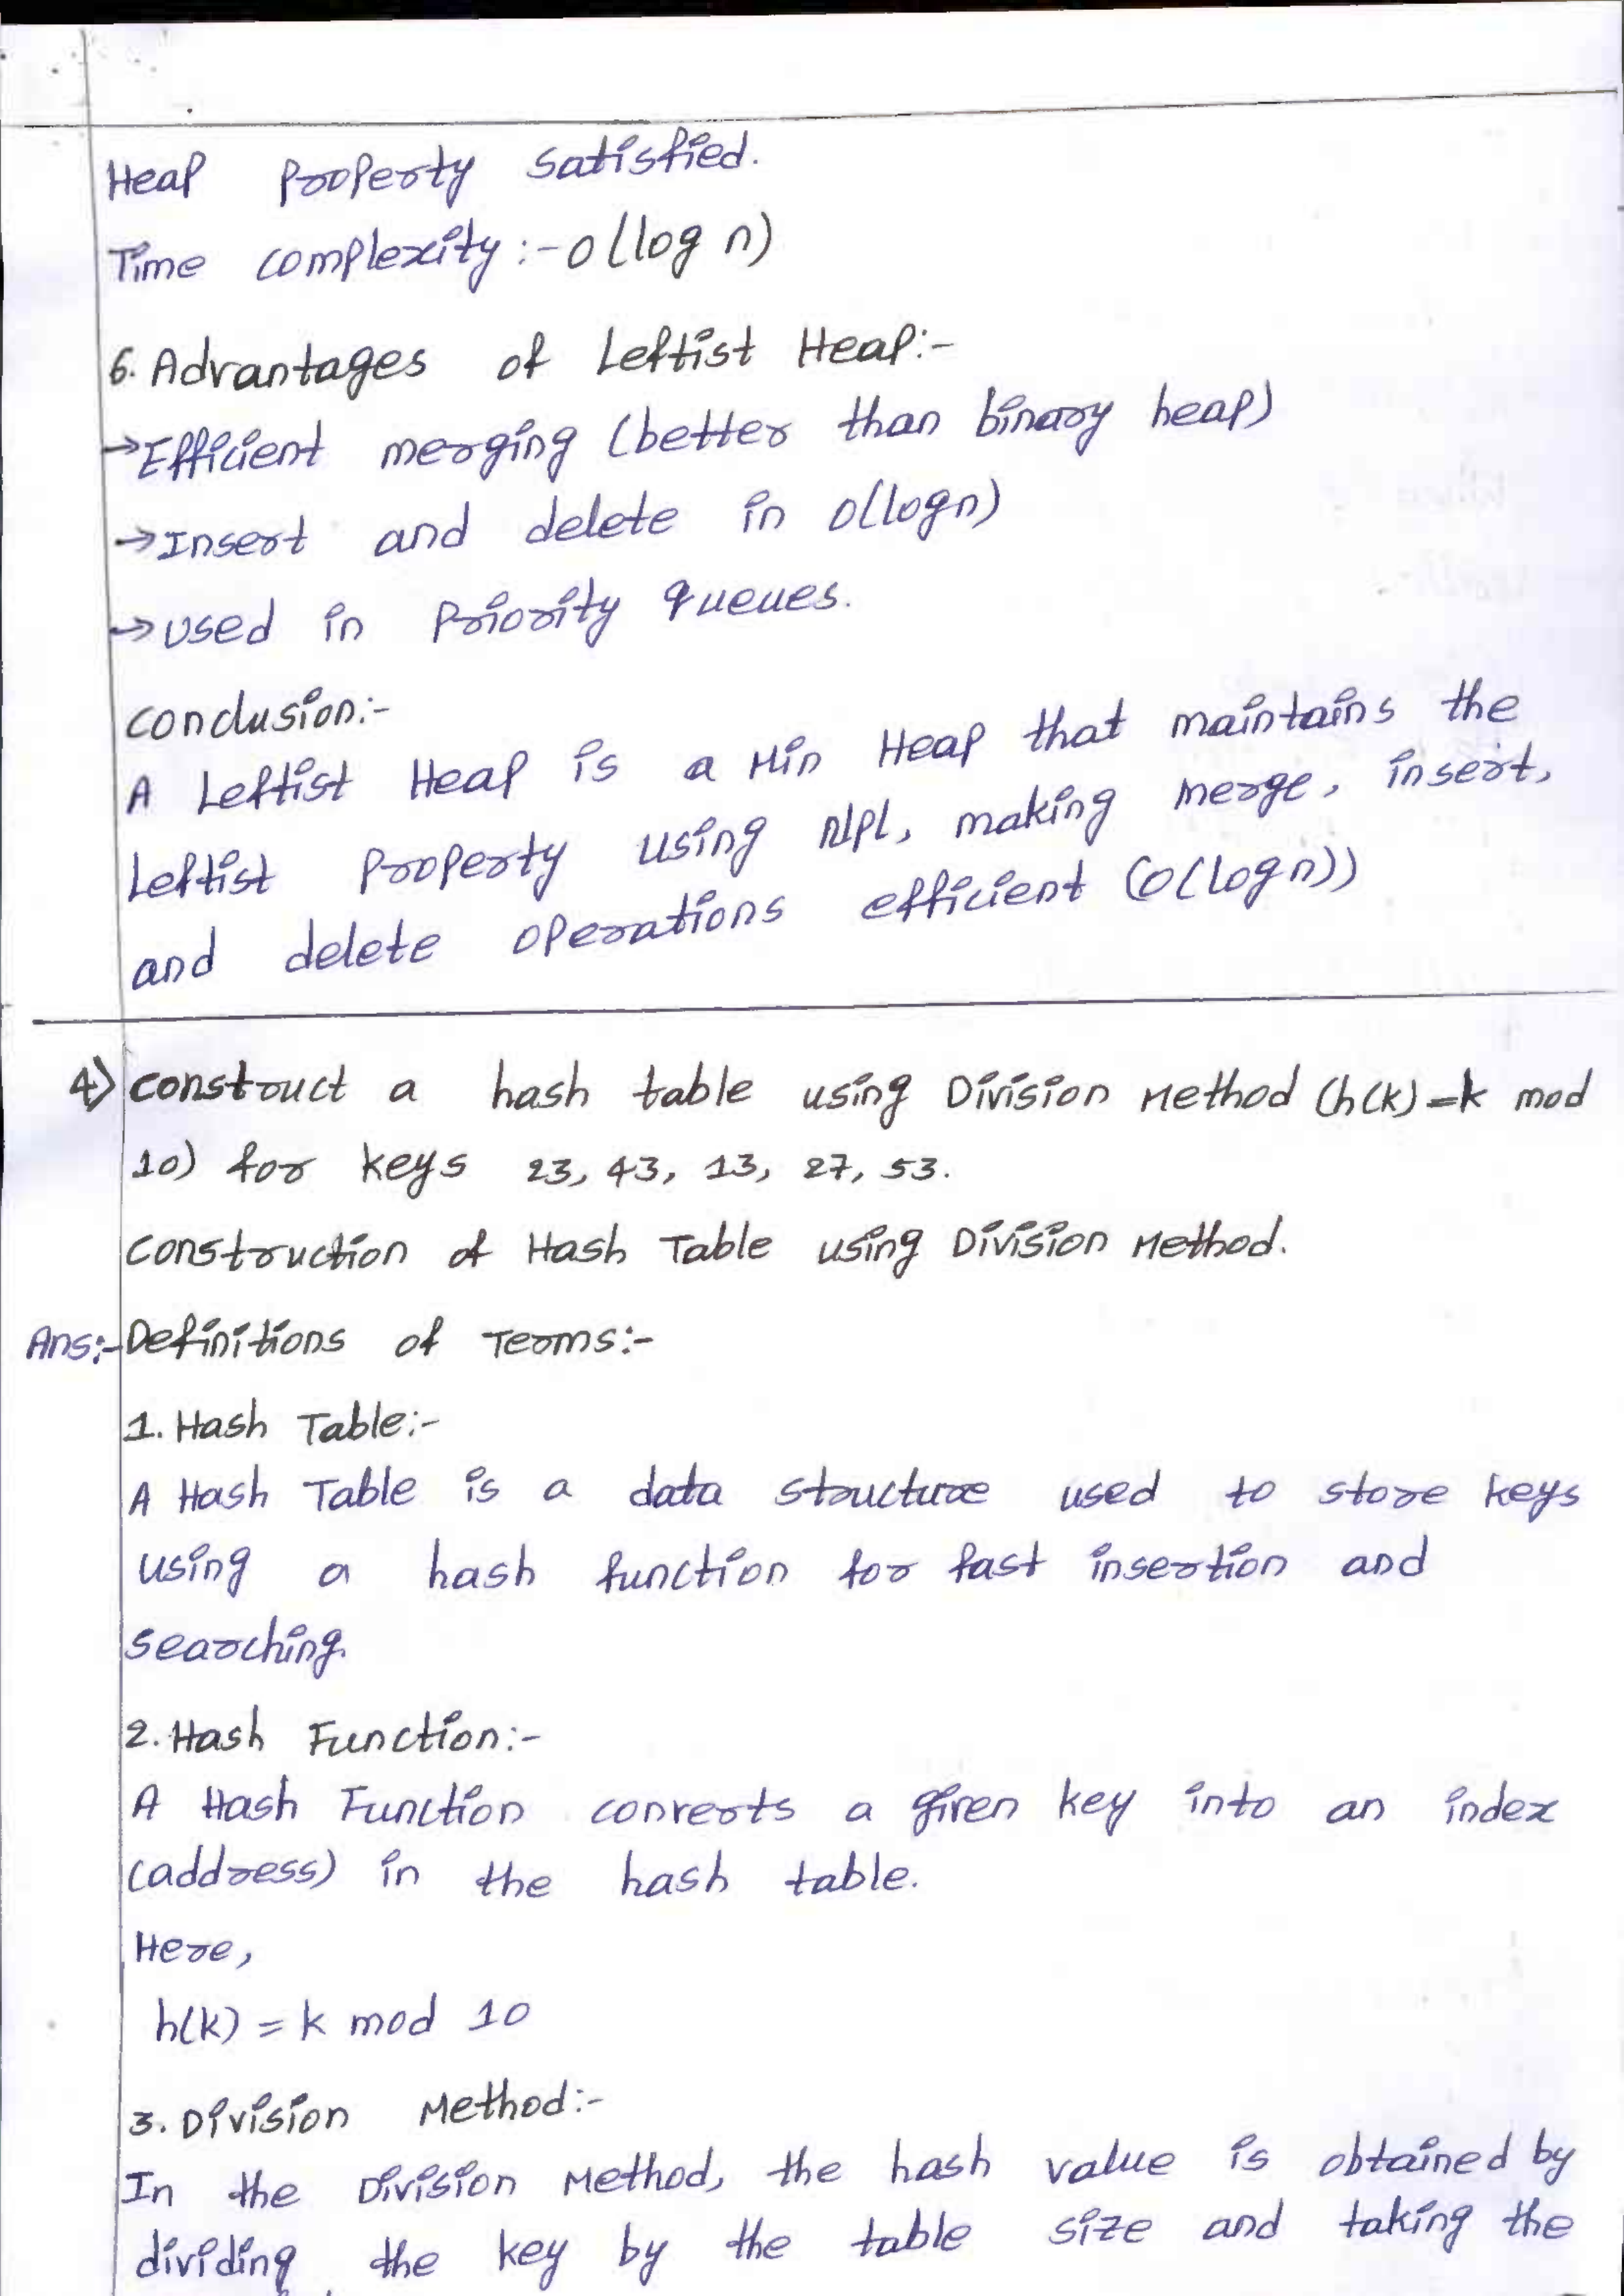 Heap Property satisfied.
Time complexity :- O(log n)
6. Advantages of Leftist Heap:-
→Efficient merging (better than binary heap)
→Insert and delete in O(logn)
→Used in Priority Queues.
Conclusion:-
A Leftist Heap is a Min Heap that maintains the
Leftist Property using NPL, making merge, insert,
and delete operations efficient (O(logn))
4) Construct a hash table using Division Method (h(k)=k mod
10) for keys 23, 43, 13, 27, 53.
Construction of Hash Table using Division Method.
Ans:- Definitions of Terms:-
1. Hash Table:-
A Hash Table is a data structure used to store keys
using a hash function for fast insertion and
searching.
2. Hash Function:-
A Hash Function converts a given key into an index
(address) in the hash table.
Here,
h(k) = k mod 10
3. Division Method:-
In the Division Method, the hash value is obtained by
dividing the key by the table size and taking the